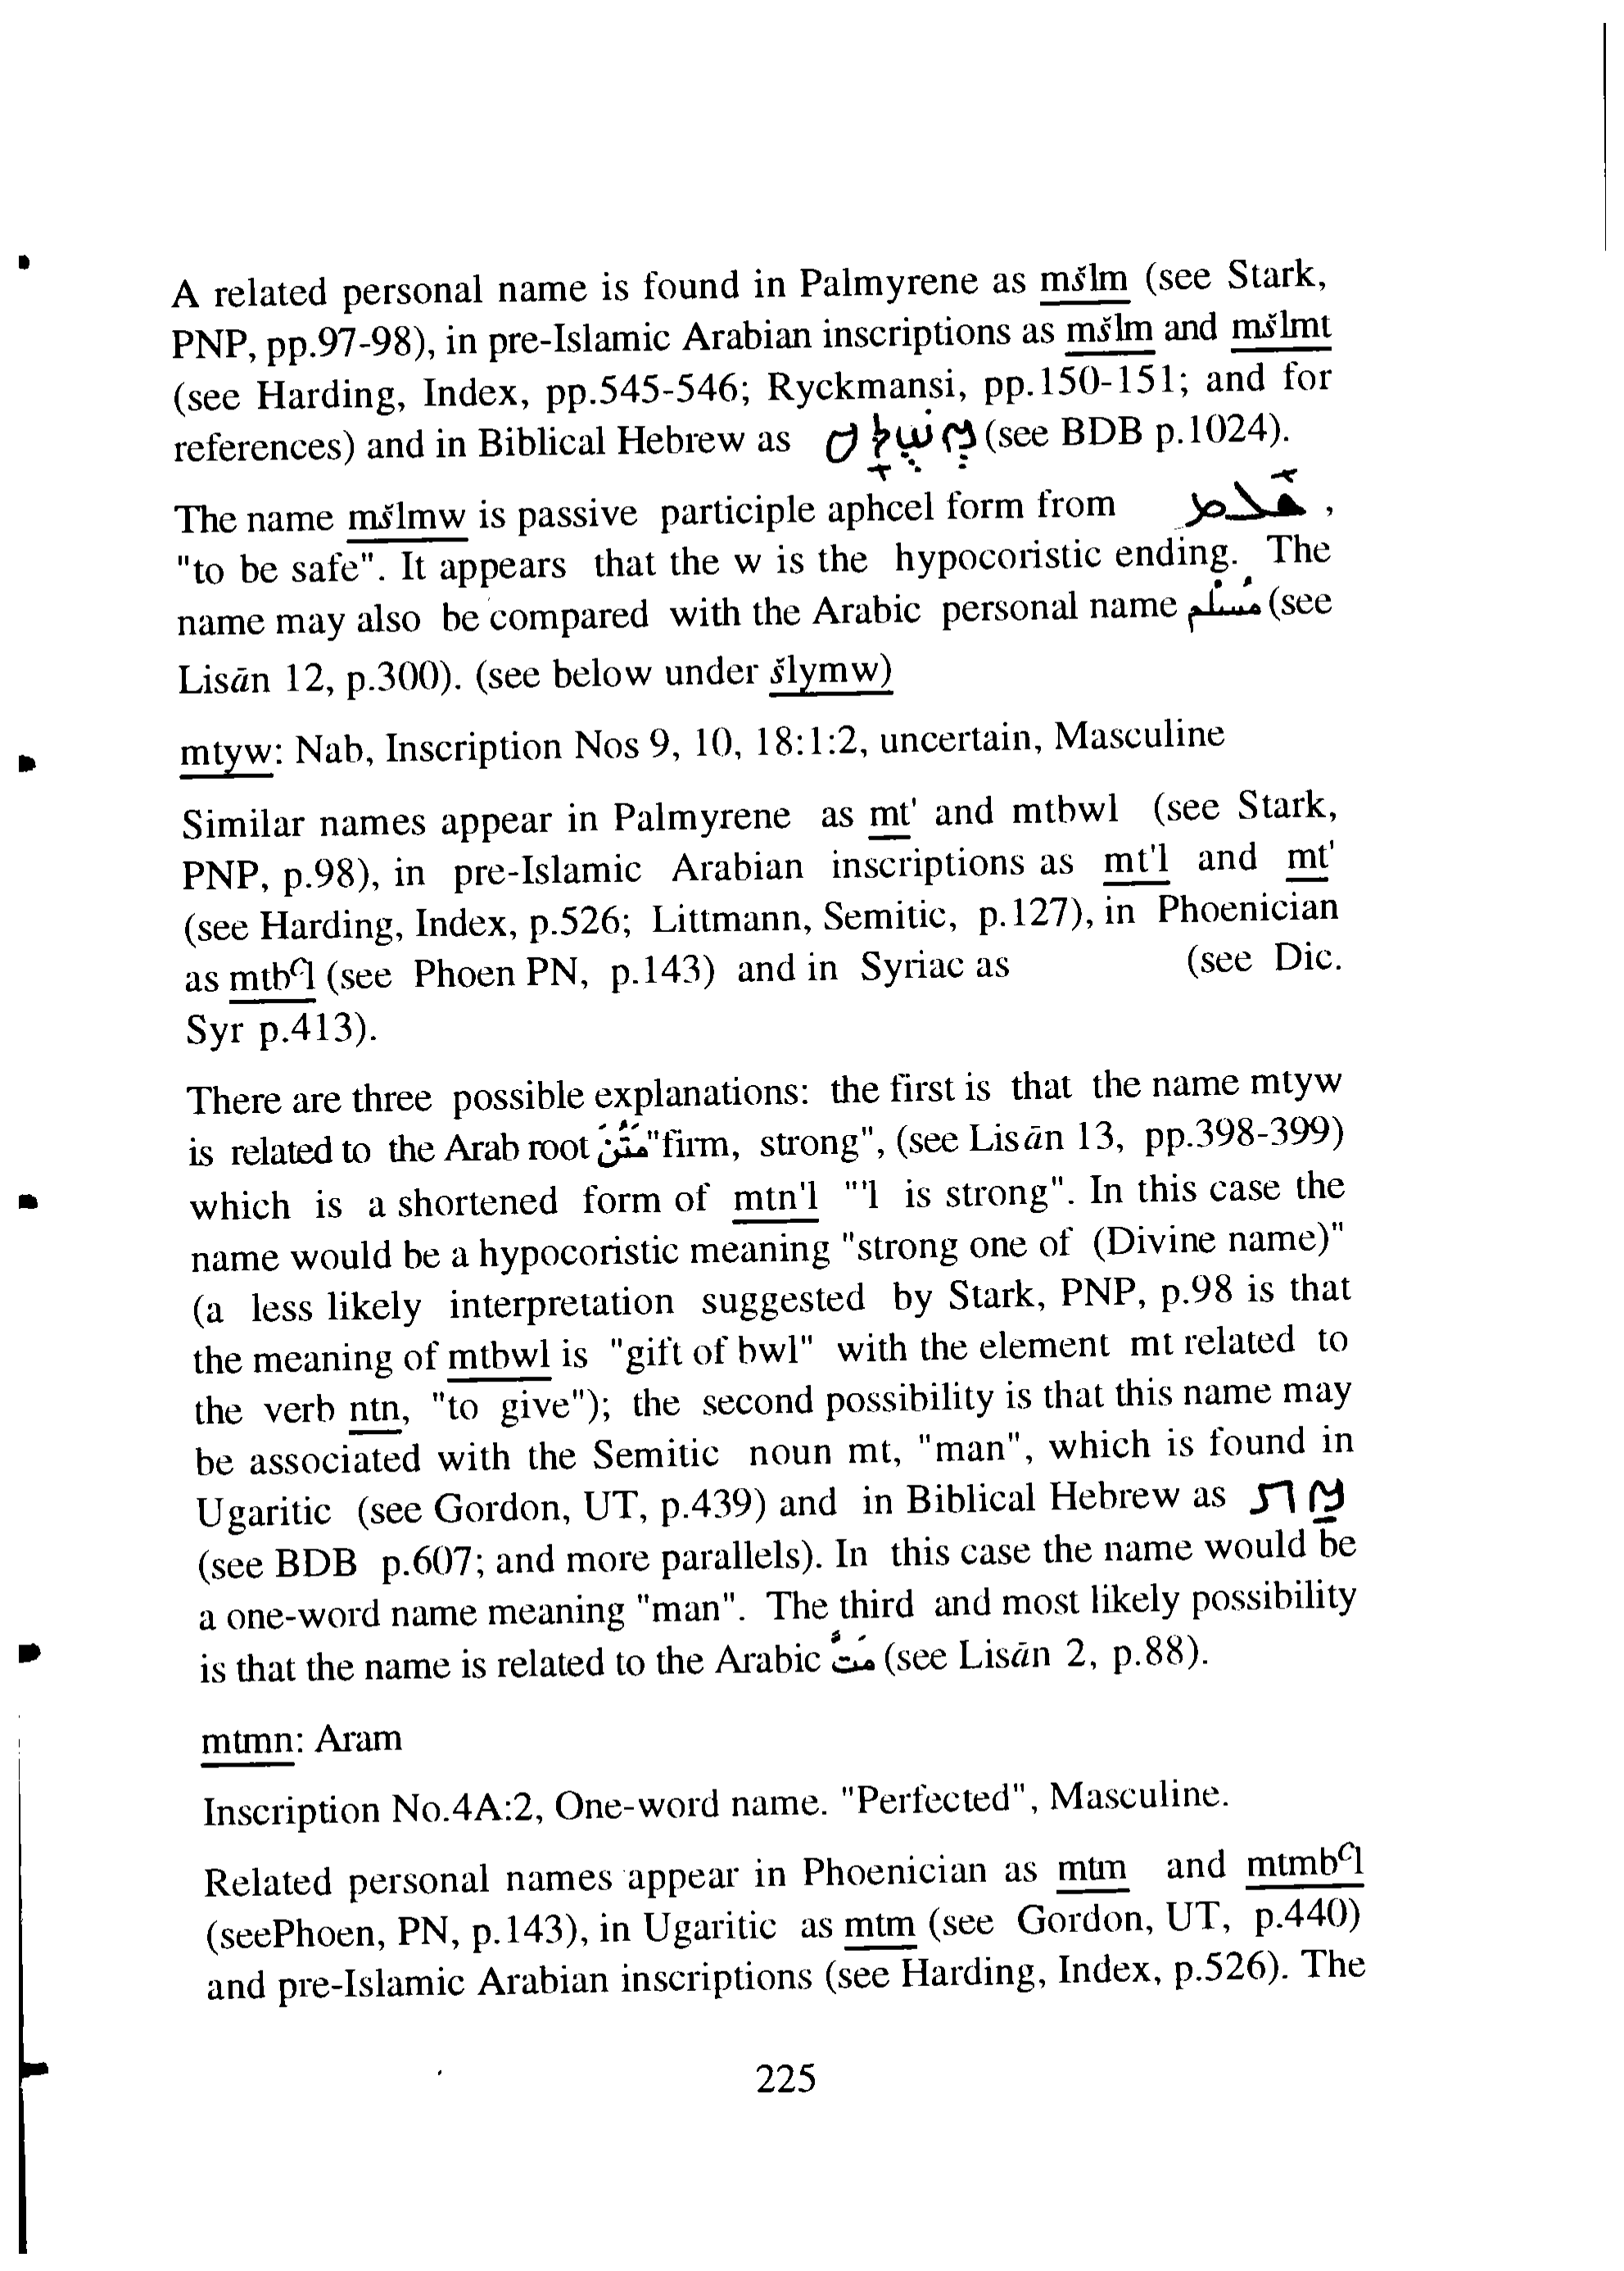 A related personal name is found in Palmyrene as mšlm (see Stark,
PNP, pp.97-98), in pre-Islamic Arabian inscriptions as mšlm and mšlmt
(see Harding, Index, pp.545-546; Ryckmansi, pp.150-151; and for
references) and in Biblical Hebrew as מְשֻׁלָּם (see BDB p.1024).
The name mšlmw is passive participle aphcel form from ,
"to be safe". It appears that the w is the hypocoristic ending. The
name may also be compared with the Arabic personal name مُسلم (see
Lisān 12, p.300). (see below under šlymw)
mtyw: Nab, Inscription Nos 9, 10, 18:1:2, uncertain, Masculine
Similar names appear in Palmyrene as mt' and mtbwl (see Stark,
PNP, p.98), in pre-Islamic Arabian inscriptions as mt'l and mt'
(see Harding, Index, p.526; Littmann, Semitic, p.127), in Phoenician
as mtbᶜl (see Phoen PN, p.143) and in Syriac as (see Dic.
Syr p.413).
There are three possible explanations: the first is that the name mtyw
is related to the Arab root مَتُنَ "firm, strong", (see Lisān 13, pp.398-399)
which is a shortened form of mtn'l "'l is strong". In this case the
name would be a hypocoristic meaning "strong one of (Divine name)"
(a less likely interpretation suggested by Stark, PNP, p.98 is that
the meaning of mtbwl is "gift of bwl" with the element mt related to
the verb ntn, "to give"); the second possibility is that this name may
be associated with the Semitic noun mt, "man", which is found in
Ugaritic (see Gordon, UT, p.439) and in Biblical Hebrew as מַת
(see BDB p.607; and more parallels). In this case the name would be
a one-word name meaning "man". The third and most likely possibility
is that the name is related to the Arabic مَتُّ (see Lisān 2, p.88).
mtmn: Aram
Inscription No.4A:2, One-word name. "Perfected", Masculine.
Related personal names appear in Phoenician as mtm and mtmbᶜl
(seePhoen, PN, p.143), in Ugaritic as mtm (see Gordon, UT, p.440)
and pre-Islamic Arabian inscriptions (see Harding, Index, p.526). The
225